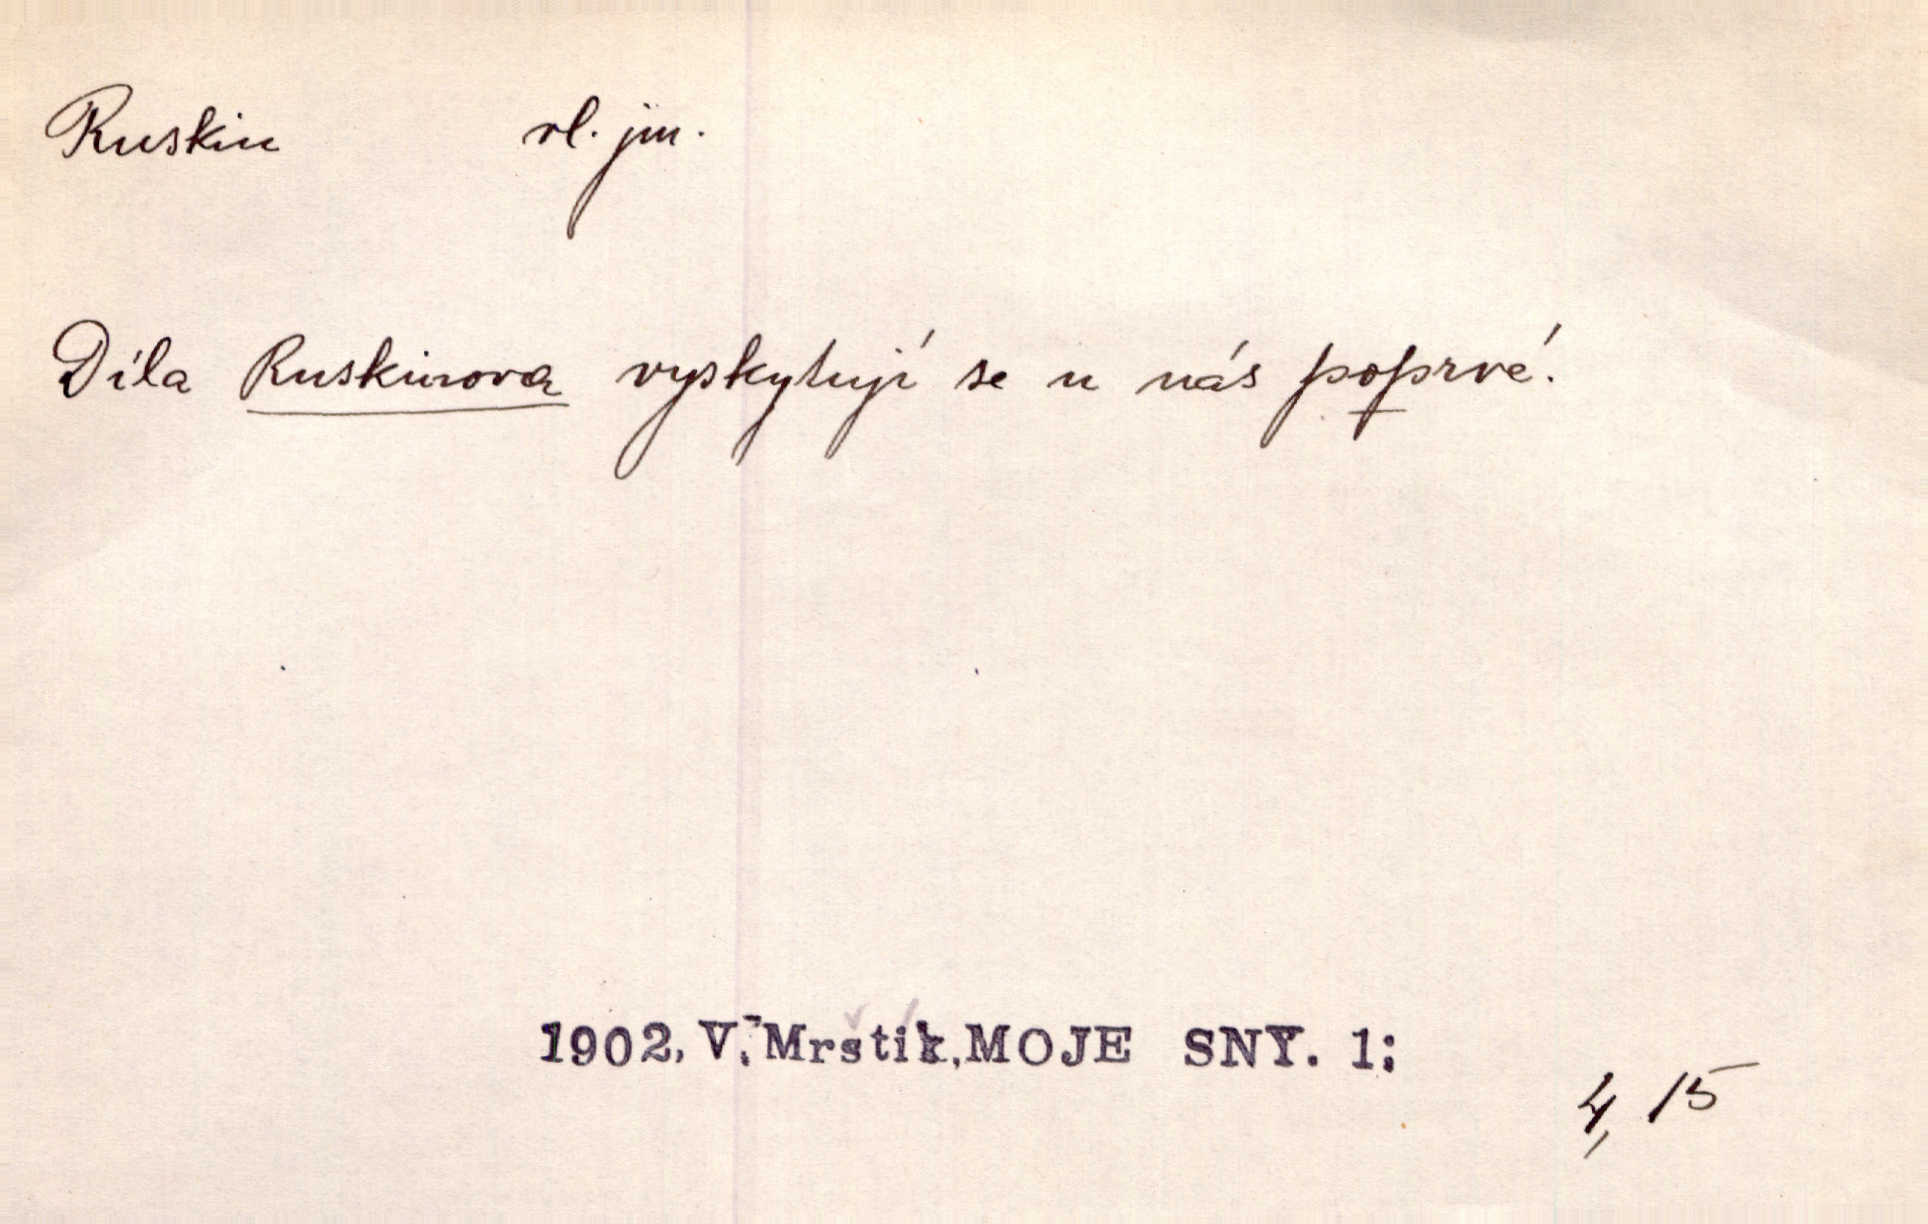 Ruskin vl. jm.
Díla Ruskinova vyskytují se u nás poprvé.
1902, V. Mrštík, MOJE SNY. 1:
4, 15